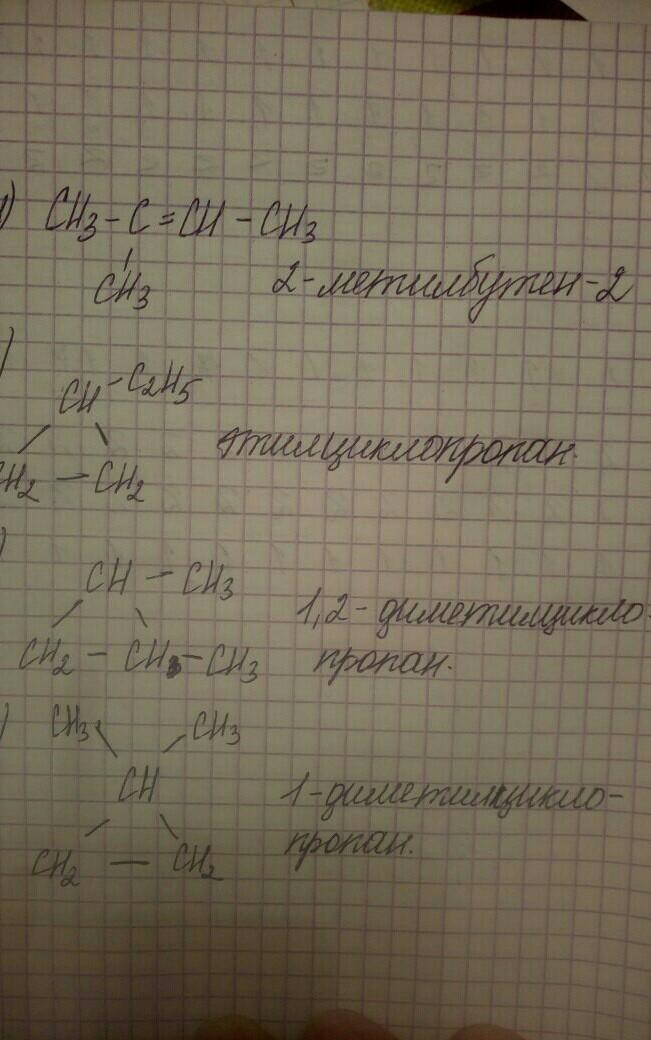 ) CH3 – C = CH – CH3
CH3
2-метилбутен-2
)
CH – C2H5
CH2 — CH2
этилциклопропан.
)
CH — CH3
CH2 — CH – CH3
1,2-диметилцикло-
пропан.
)
CH3 CH3
CH
CH2 — CH2
1-диметилцикло-
пропан.